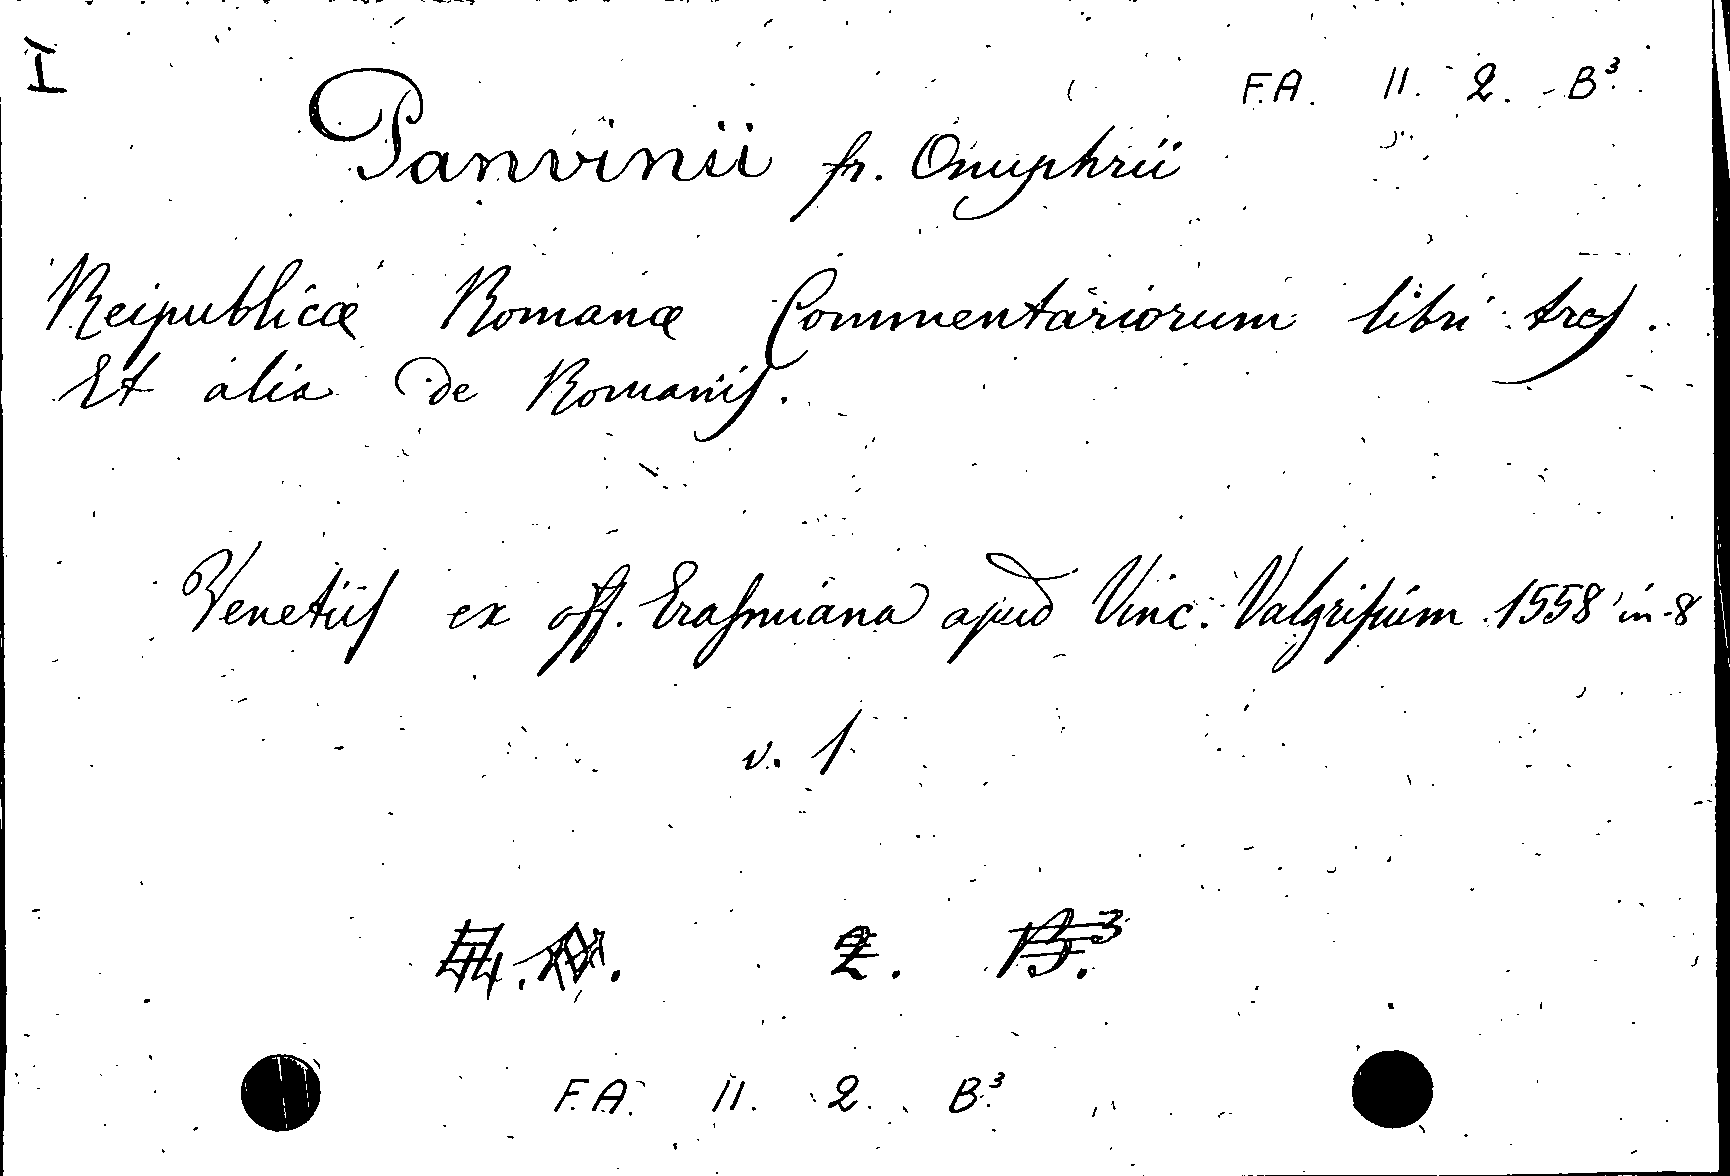 I
F.A. II. 2. B³.
Panvinii fr. Onuphrii
Reipublicæ Romanæ Commentariorum libri tres.
Et alia de Romanis.
Venetiis ex off. Erasmiana apud Vinc. Valgrisium 1558 in-8
v. 1
2. B.³
F.A. II. 2. B³.